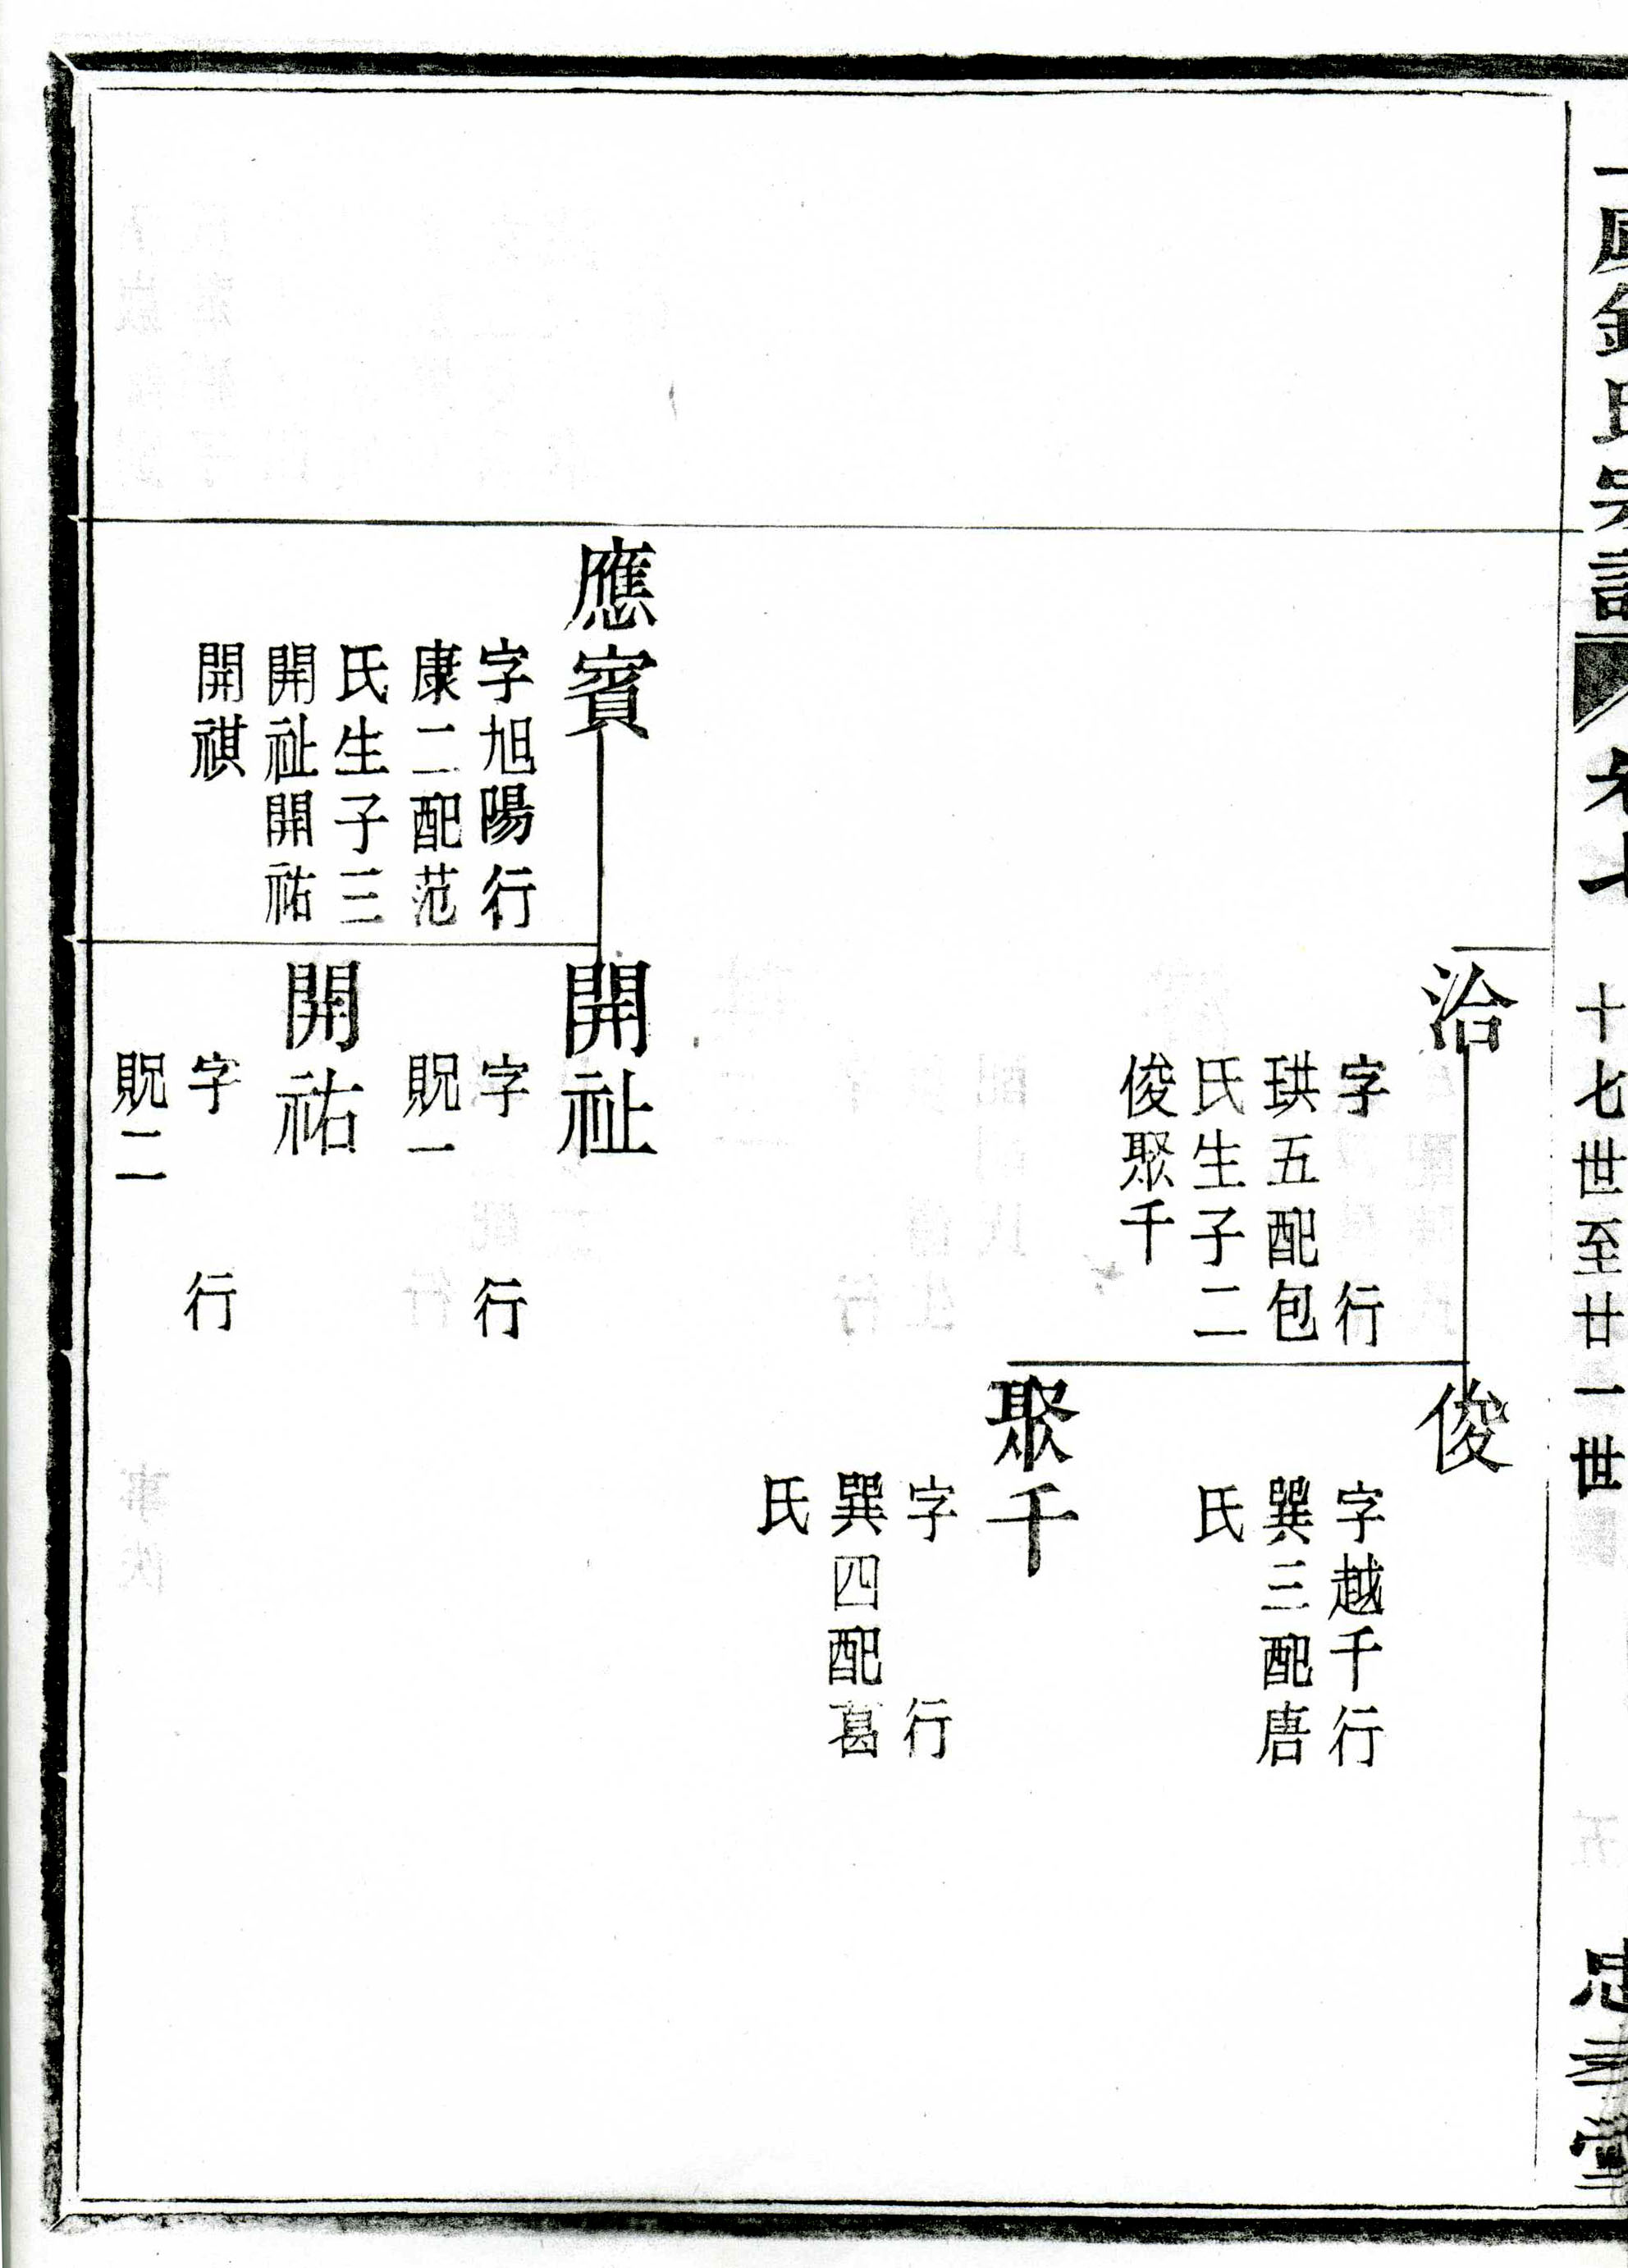 氏宗譜
十七世至廿一世
洽
字 行
珙五配包
氏生子二
俊聚千
俊
字越千行
巽三配唐
氏
聚千
字 行
巽四配葛
氏
應賓
字旭陽行
康二配范
氏生子三
開祉開祐
開祺
開祉
字 行
貺一
開祐
字 行
貺二